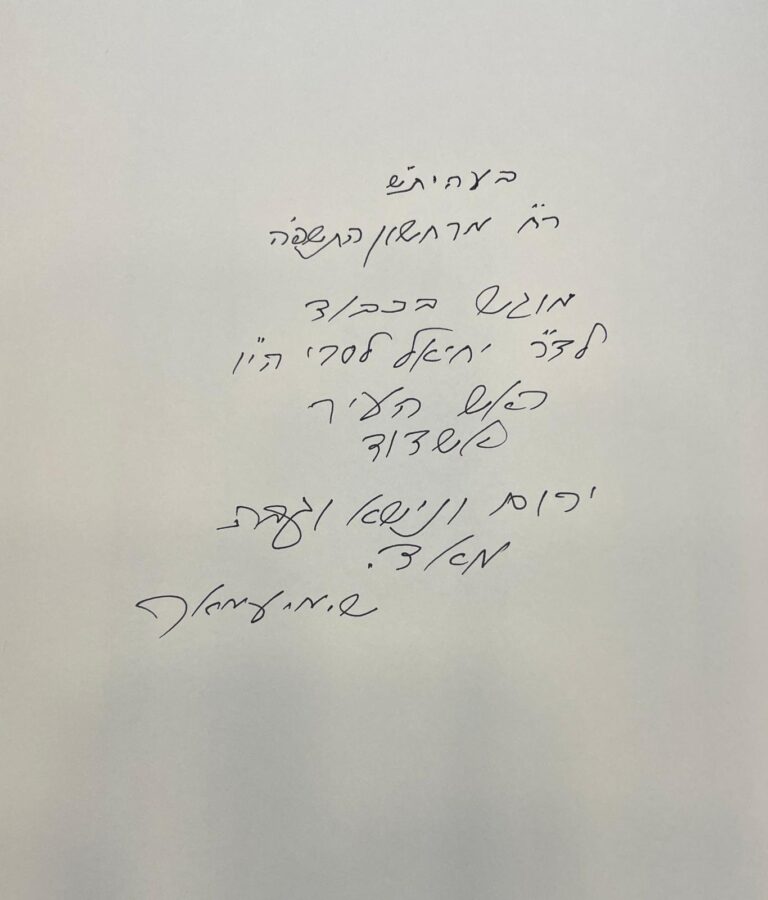 בעהית"ש
ר"ח מרחשון התשפ"ה
מוגש בכבוד
לד"ר יחיאל לסרי הי"ו
ראש העיר
אשדוד
ירום ונישא וגבה
מאד.